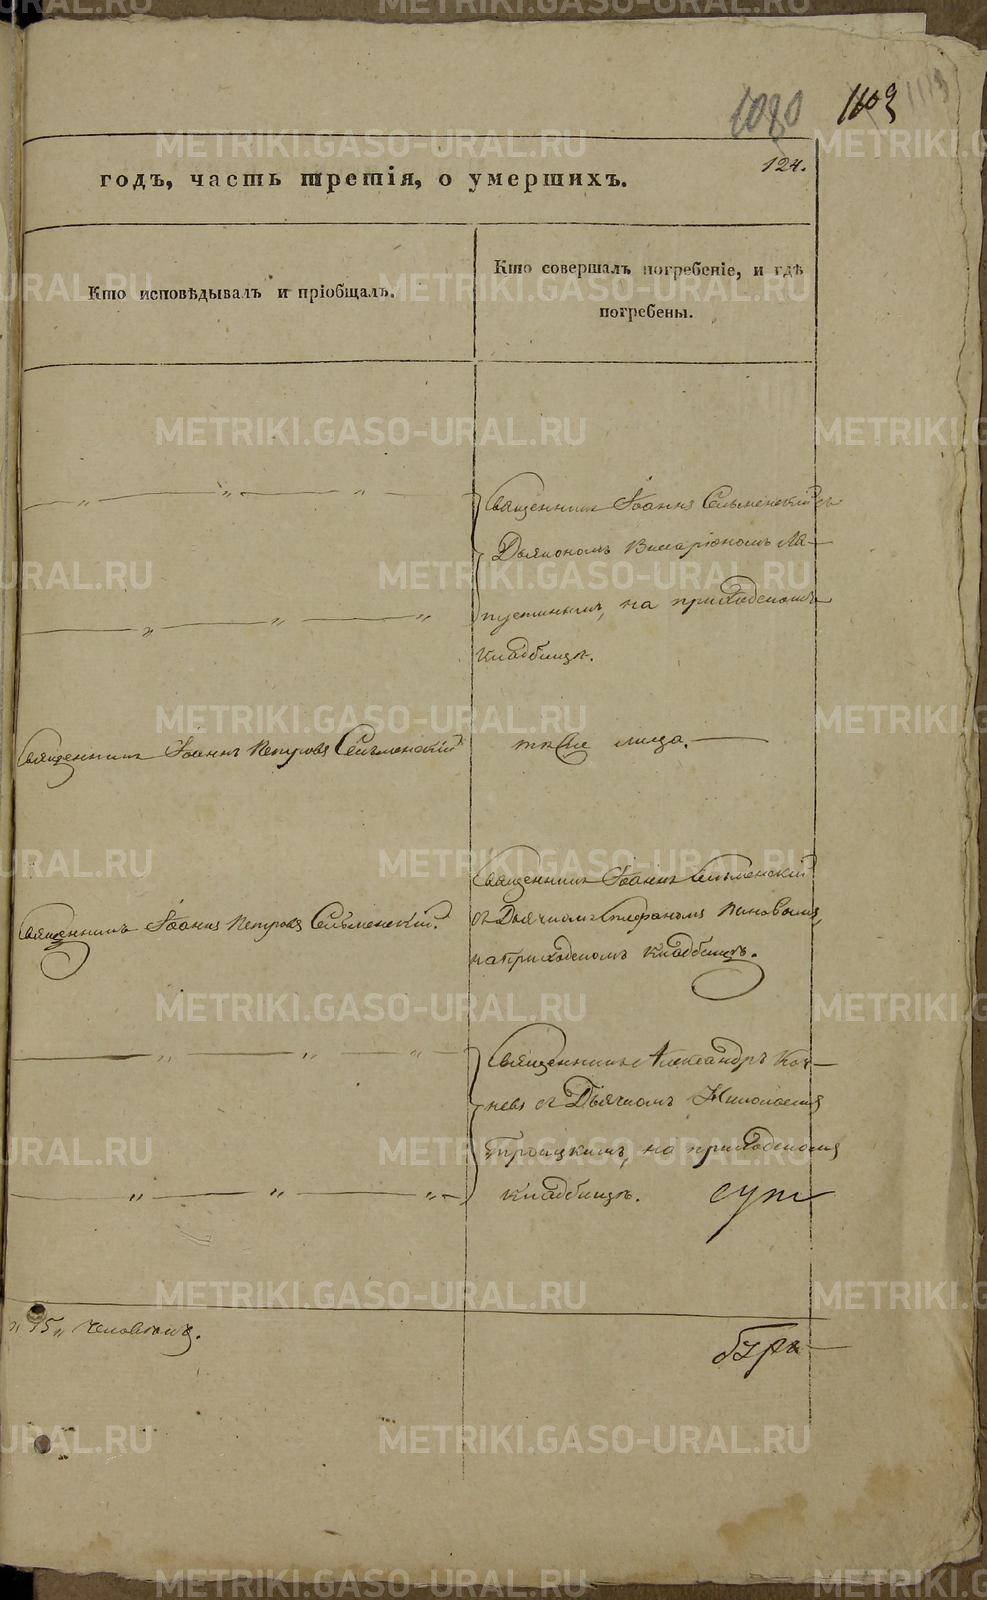 1080 1103 1113
124.
годъ, часть третія, о умершихъ.
Кто исповѣдывалъ и пріобщалъ.
Кто совершалъ погребеніе, и гдѣ
погребены.
Священникъ Іоаннъ Сельменскій съ
Дьякономъ Виссаріономъ Ла-
пустинымъ, на приходскомъ
кладбищѣ.
Священникъ Іоаннъ Петровъ Сельменскій
тѣже лица.
Священникъ Іоаннъ Сельменскій
съ Дьячкомъ Стефаномъ Поповымъ,
на приходскомъ кладбищѣ.
Священникъ Іоаннъ Петровъ Сельменскій.
Священникъ Александръ Коч-
невъ съ Дьячкомъ Николаемъ
Троицкимъ, на приходскомъ
кладбищѣ.
"15" человѣкъ.
METRIKI.GASO-URAL.RU